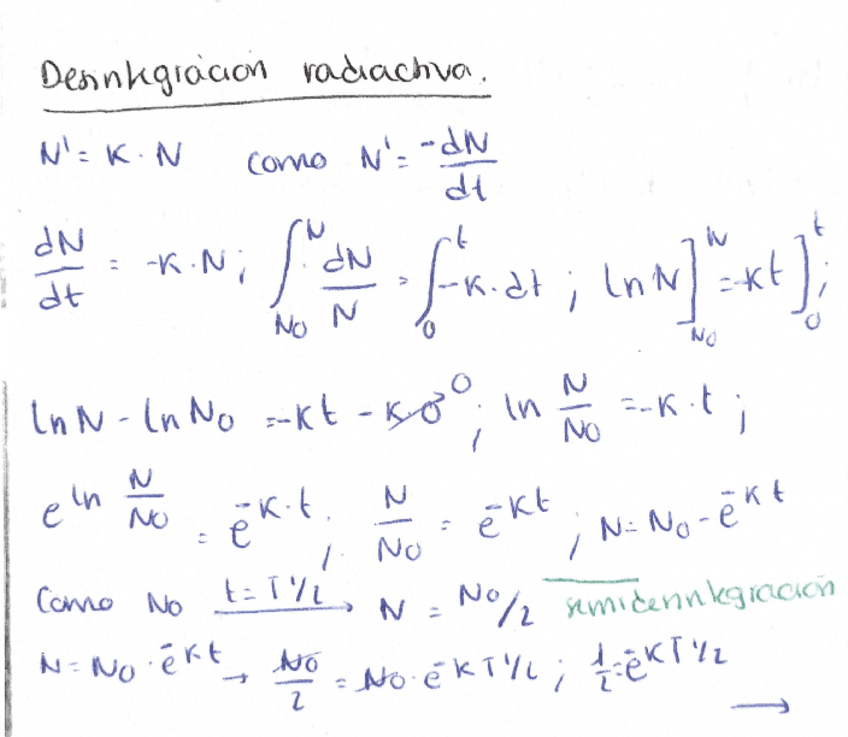 Desintegración radiactiva.
N' = K · N   como N' = -dN/dt
dN/dt = -K · N ; ∫_{No}^{N} dN/N = ∫_{0}^{t} -K · dt ; ln N]_{No}^{N} = -kt]_{0}^{t} ;
ln N - ln No = -Kt - K·0 0 ; ln N/No = -K · t ;
e^{ln N/No} = e^{-K·t} ; N/No = e^{-Kt} ; N = No - e^{-Kt}
Como No t = T 1/2 → N = No/2 semidesintegración
N = No · e^{-Kt} → No/2 = No · e^{-K T 1/2} ; 1/2 = e^{-K T 1/2}
→